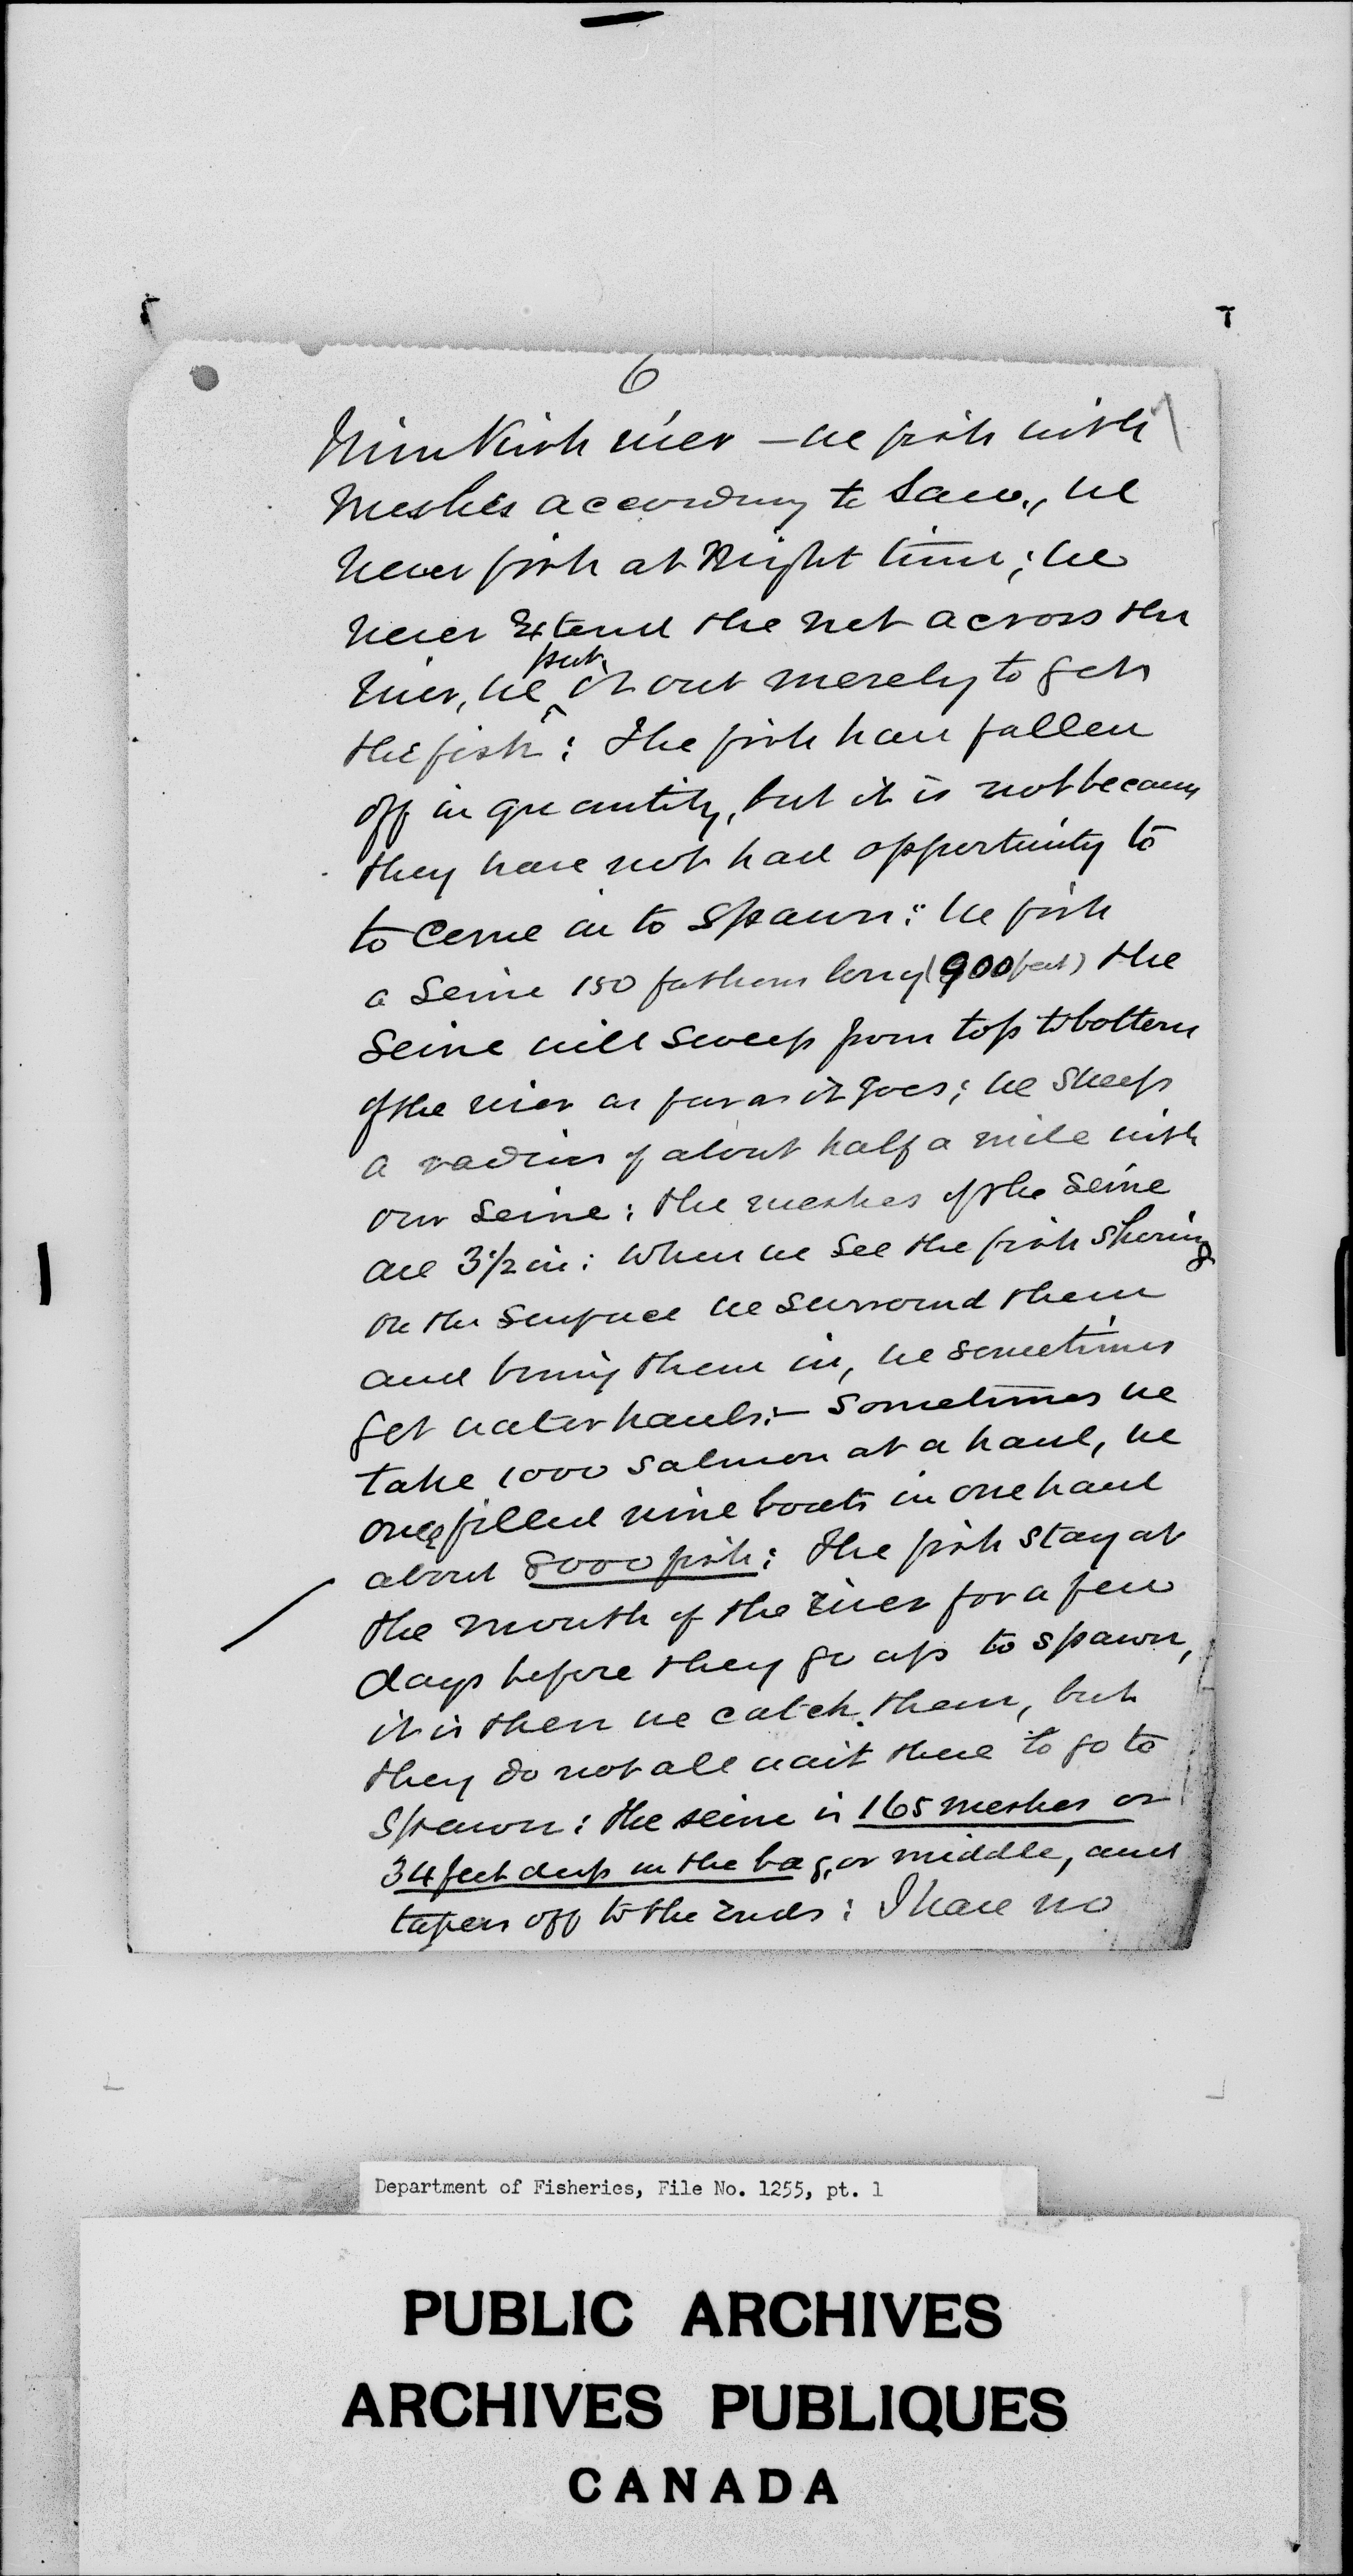 6
Nimkish river — we fish with
meshes according to law, we
never fish at night time; we
never Extend the net across the
river, we put it out merely to get
the fish: The fish have fallen
off in quantity, but it is not because
they have not had opportunity to
to come in to spawn: we fish
a Seine 150 fathoms long (900 feet) the
Seine will sweep from top to bottom
of the river as far as it goes; we sweep
a radius of about half a mile with
our Seine: the meshes of the Seine
are 3½ in: When we see the fish showing
on the surface we surround them
and bring them in, we sometimes
get water hauls:— sometimes we
take 1000 salmon at a haul, we
once filled nine boats in one haul
about 8000 fish: The fish stay at
the mouth of the river for a few
days before they go up to spawn,
it is then we catch them, but
they do not all wait there to go to
spawn: the seine is 165 meshes or
34 feet deep in the bag, or middle, and
tapers off to the Ends: I have no
Department of Fisheries, File No. 1255, pt. 1
PUBLIC ARCHIVES
ARCHIVES PUBLIQUES
CANADA